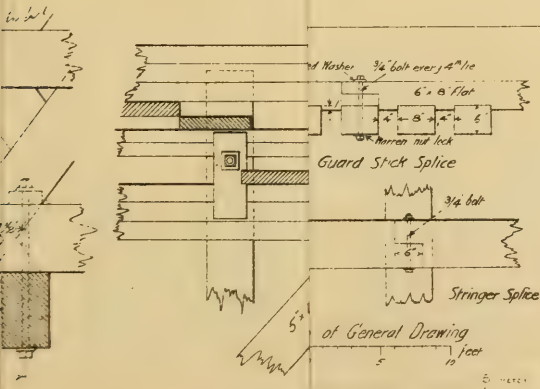 d Washer
3/4" bolt every 4th tie
6" x 8" Flat
4" 8" 4" 6
Warren nut lock
Guard Stick Splice
3/4 bolt
6"
Stringer Splice
5"
of General Drawing
5 10 feet